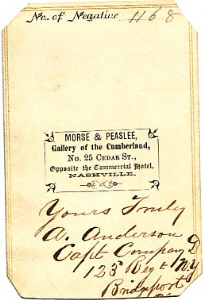 No. of Negative 1168
MORSE & PEASLEE,
Gallery of the Cumberland,
No. 25 Cedar St.,
Opposite the Commercial Hotel,
NASHVILLE.
Yours Truly
A. Anderson
Capt Company D
123 Regt N.Y
Bridgeport